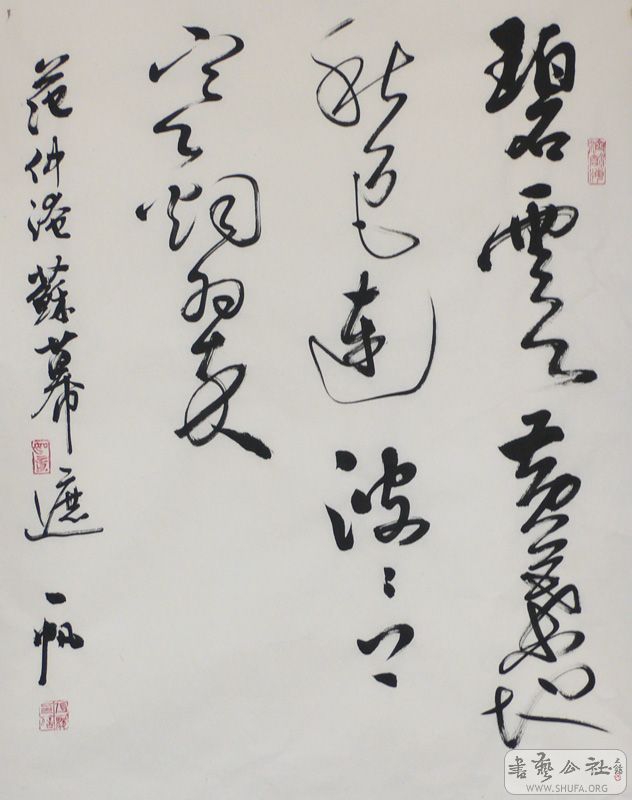 碧雲天黃葉地
秋色連波〻上
寒烟翠
范仲淹蘇幕遮 一帆
書藝公社
WWW.SHUFA.ORG